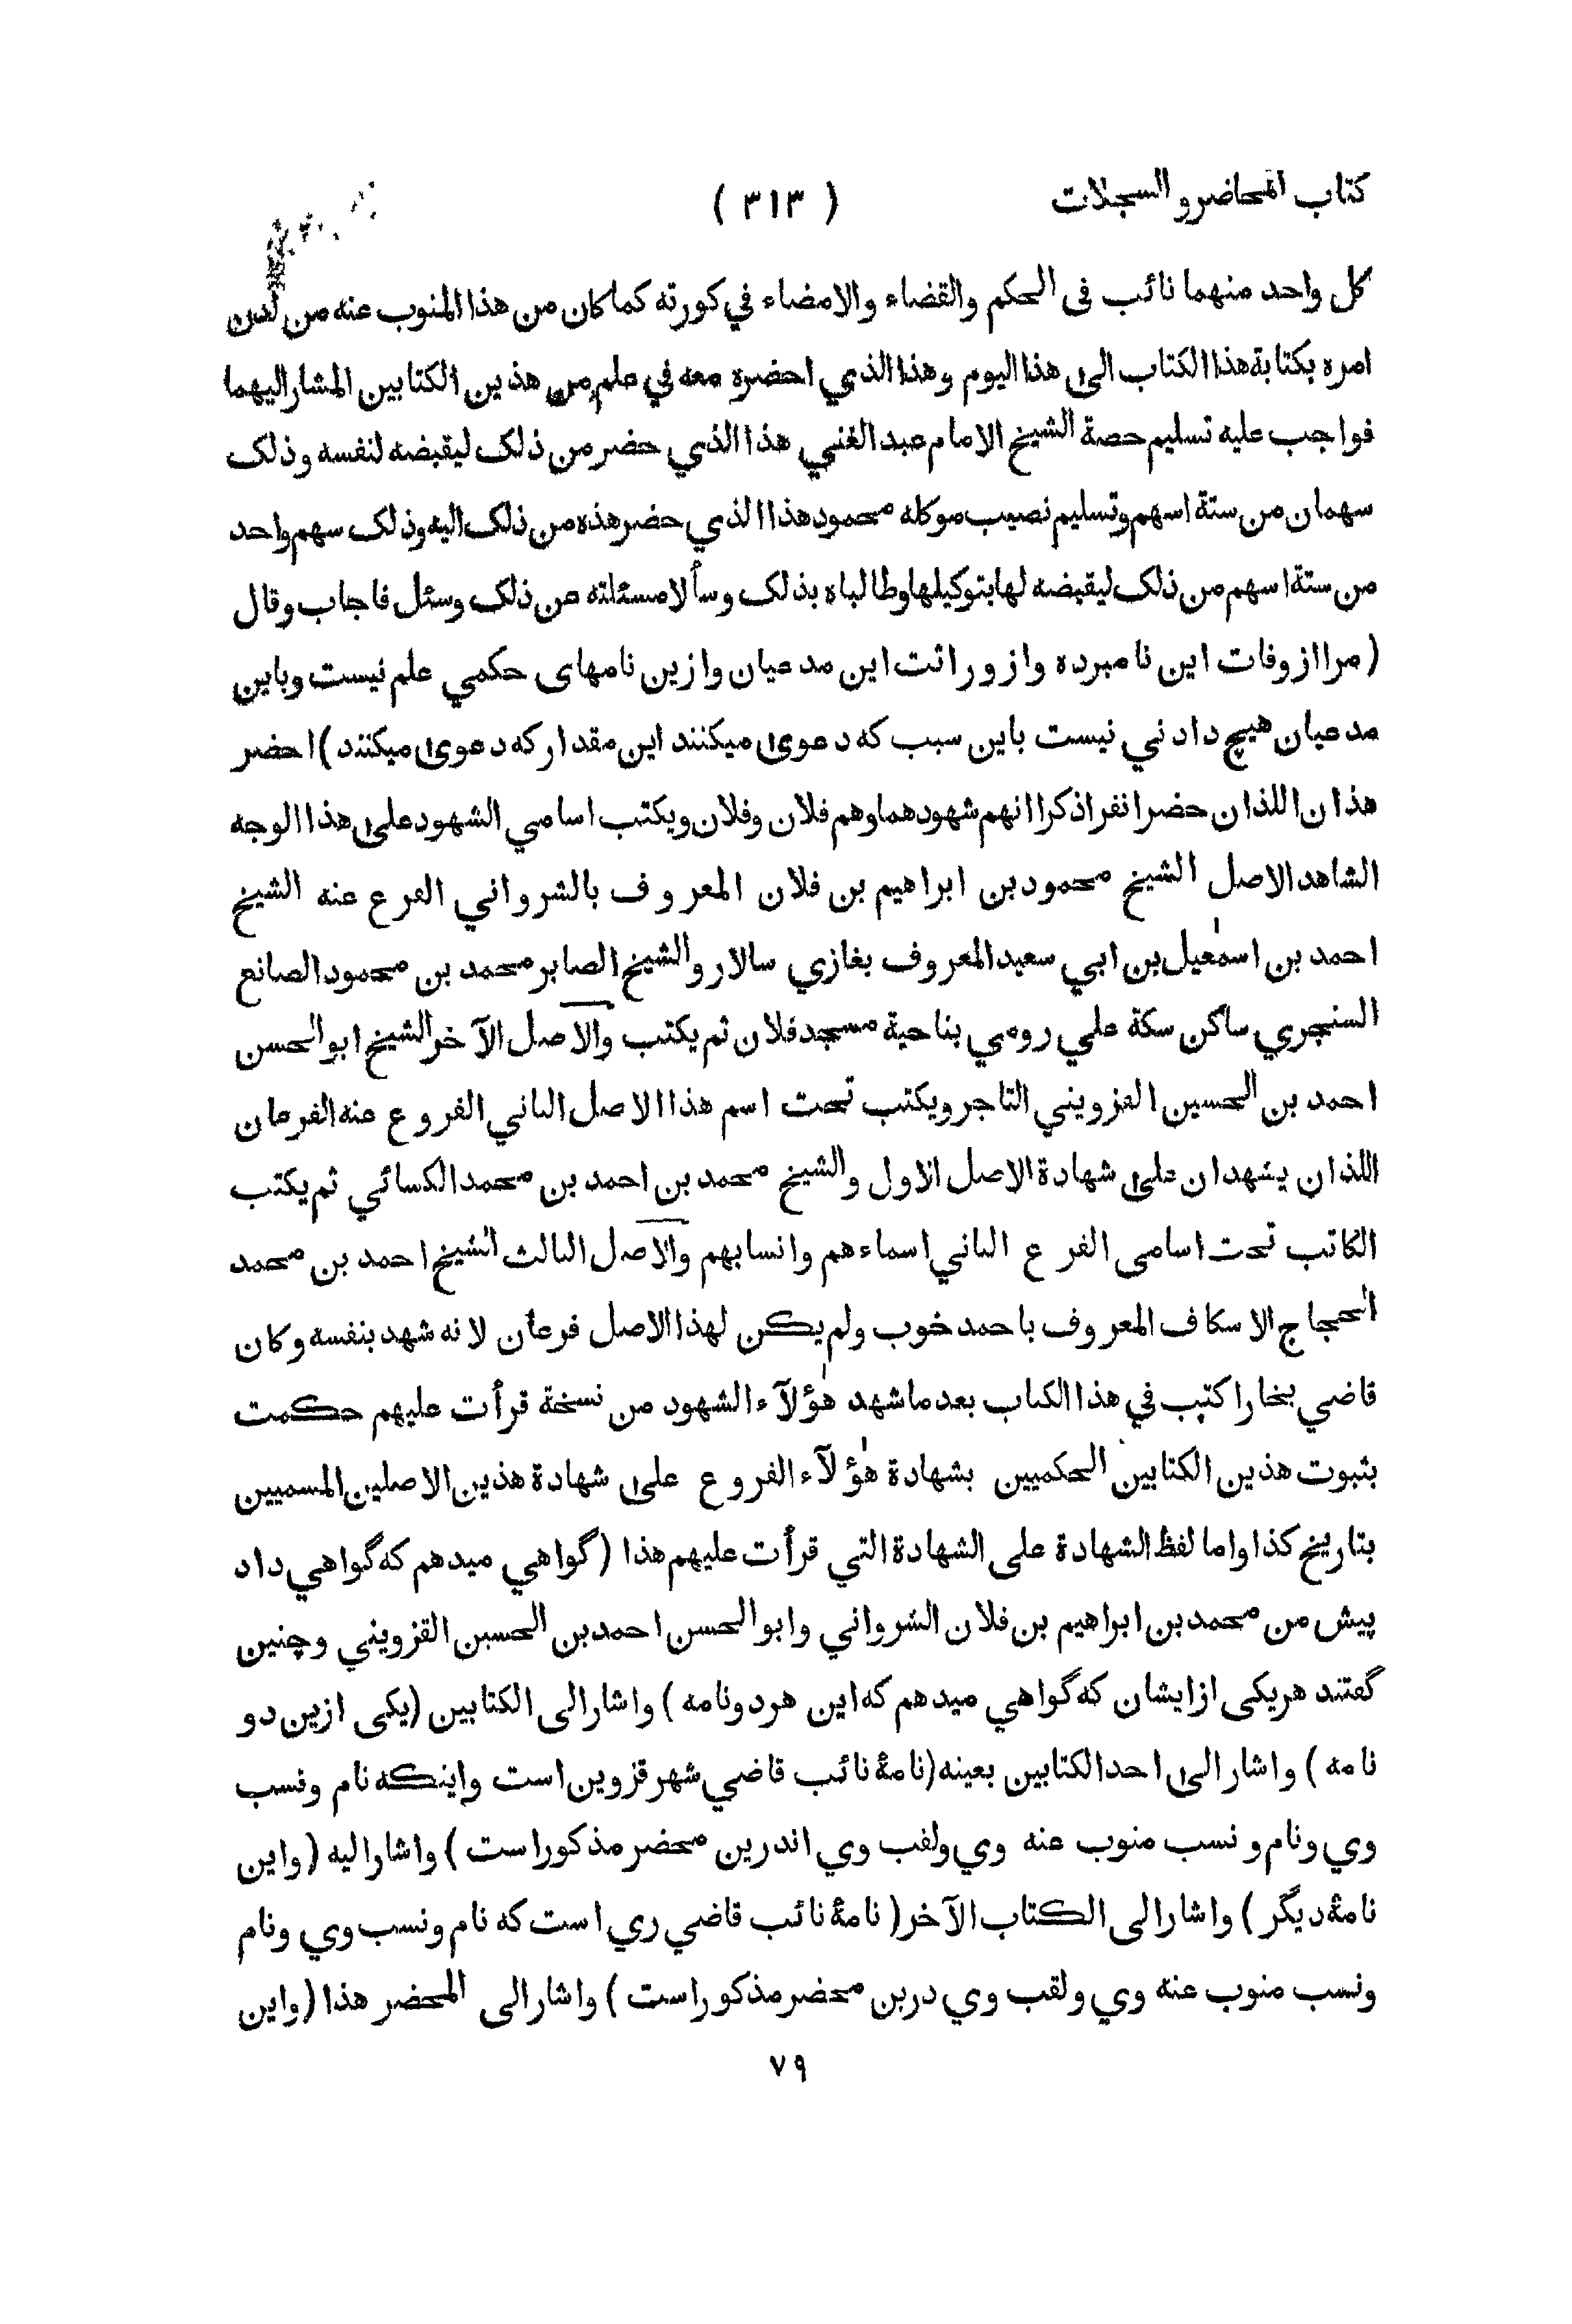 كتاب المحاضر و السجلات
( ٣١٣ )
كل واحد منهما نائب فى الحكم والقضاء والامضاء في كورته كما كان من هذا المنوب عنه من لدن
امره بكتابة هذا الكتاب الى هذا اليوم وهذا الذي احضره معه في علم من هذين الكتابين المشار اليهما
فواجب عليه تسليم حصة الشيخ الامام عبد الغني هذا الذي حضر من ذلك ليقبضه لنفسه وذلك
سهمان من ستة اسهم وتسليم نصيب موكله محمود هذا الذي حضر هذه من ذلك اليه وذلك سهم واحد
من ستة اسهم من ذلك ليقبضه لها بتوكيلها وطالباه بذلك وسألا مسئلته عن ذلك وسئل فاجاب وقال
( مرا از وفات اين نامبرده و از وراثت اين مدعيان و ازين نامهاى حكمي علم نيست و باين
مدعيان هيچ دادني نيست باين سبب كه دعوى ميكنند اين مقدار كه دعوى ميكنند ) احضر
هذان اللذان حضرا نفرا ذكرا انهم شهودهما وهم فلان وفلان ويكتب اسامي الشهود على هذا الوجه
الشاهد الاصل الشيخ محمود بن ابراهيم بن فلان المعروف بالشرواني الفرع عنه الشيخ
احمد بن اسمٰعيل بن ابي سعيد المعروف بغازي سالار والشيخ الصابر محمد بن محمود الصانع
السنجري ساكن سكة علي رومي بناحية مسجد فلان ثم يكتب والاصل الآخر الشيخ ابو الحسن
احمد بن الحسين القزويني التاجر ويكتب تحت اسم هذا الاصل الثاني الفروع عنه الفرعان
اللذان يشهدان على شهادة الاصل الاول والشيخ محمد بن احمد بن محمد الكسائي ثم يكتب
الكاتب تحت اسامى الفرع الثاني اسماءهم وانسابهم والاصل الثالث الشيخ احمد بن محمد
الحجاج الاسكاف المعروف باحمد خوب ولم يكن لهذا الاصل فرعان لانه شهد بنفسه وكان
قاضي بخارا كتب في هذا الكتاب بعد ما شهد هٰؤلآء الشهود من نسخة قرأت عليهم حكمت
بثبوت هذين الكتابين الحكميين بشهادة هٰؤلآء الفروع على شهادة هذين الاصلين المسميين
بتاريخ كذا واما لفظ الشهادة على الشهادة التي قرأت عليهم هذا ( گواهي ميدهم كه گواهي داد
پيش من محمد بن ابراهيم بن فلان الشرواني وابو الحسن احمد بن الحسين القزويني و چنين
گفتند هريكى ازايشان كه گواهي ميدهم كه اين هردو نامه ) واشار الى الكتابين ( يكى ازين دو
نامه ) واشار الى احد الكتابين بعينه ( نامۀ نائب قاضي شهر قزوين است و اينكه نام و نسب
وي و نام و نسب منوب عنه وي و لقب وي اندرين محضر مذكور است ) واشار اليه ( و اين
نامۀ ديگر ) واشار الى الكتاب الآخر ( نامۀ نائب قاضي ري است كه نام و نسب وي و نام
و نسب منوب عنه وي و لقب وي درين محضر مذكور است ) واشار الى المحضر هذا ( و اين
٧٩